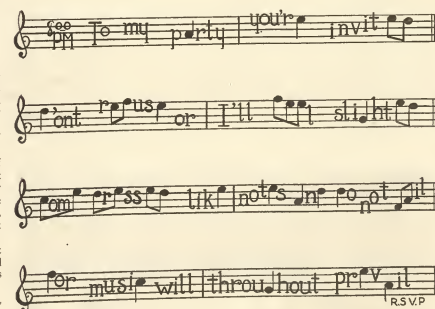 8:00 PM To my party you're invited
d'ont refuse or I'll feel slighted
Come dressed like notes and do not fail
For music will throughout prevail
R.S.V.P